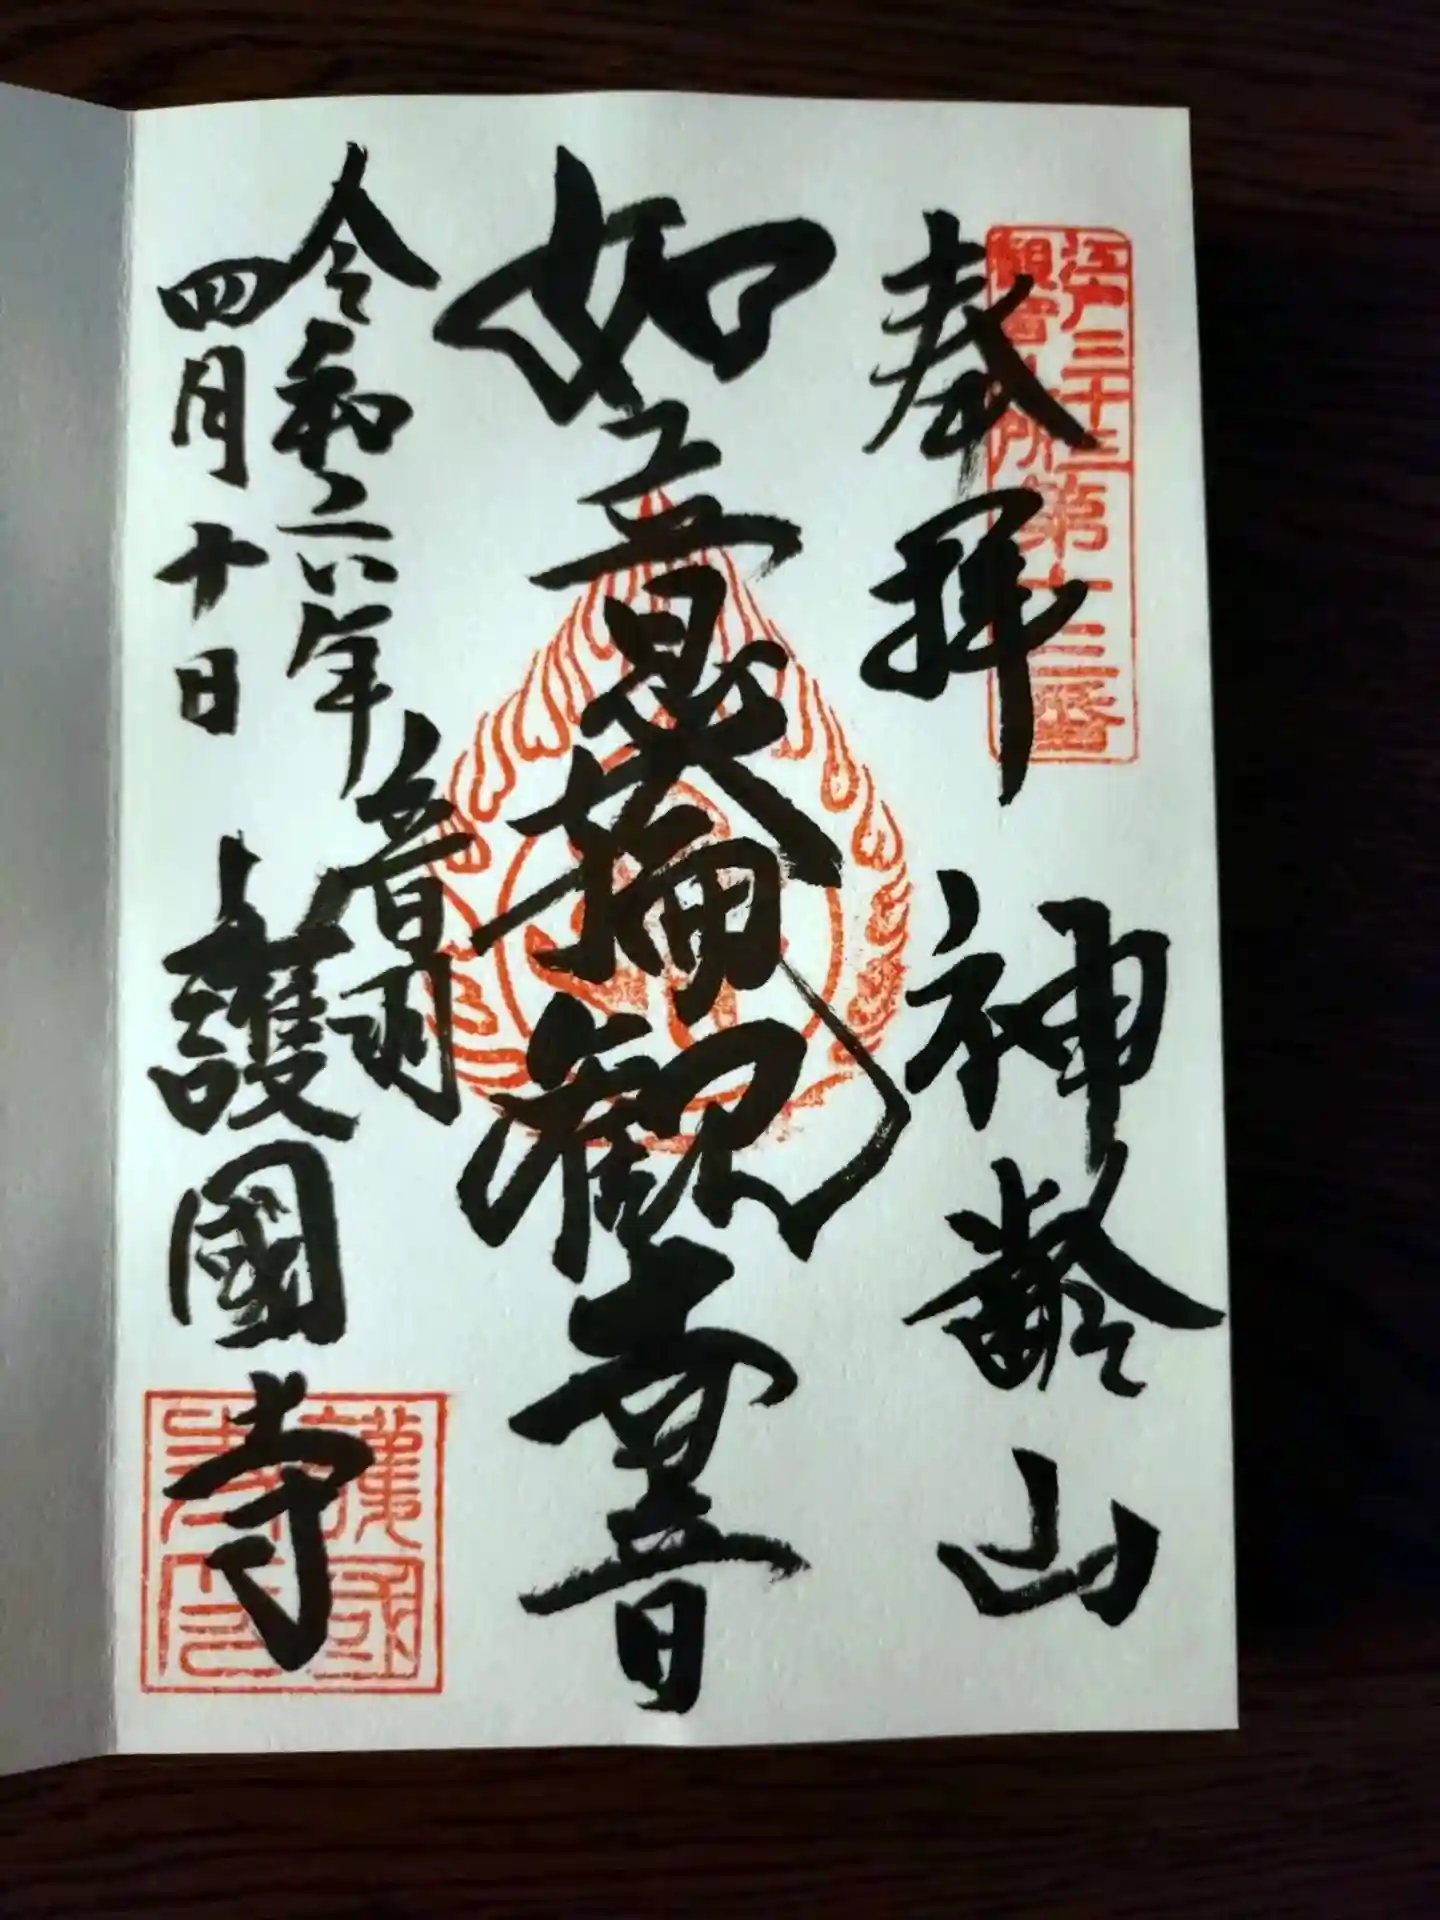 江戸三十三
観音札所
第十三番
奉拝 神齢山
如意輪観世音
令和六年
四月十日
音羽
護國寺
護國寺印